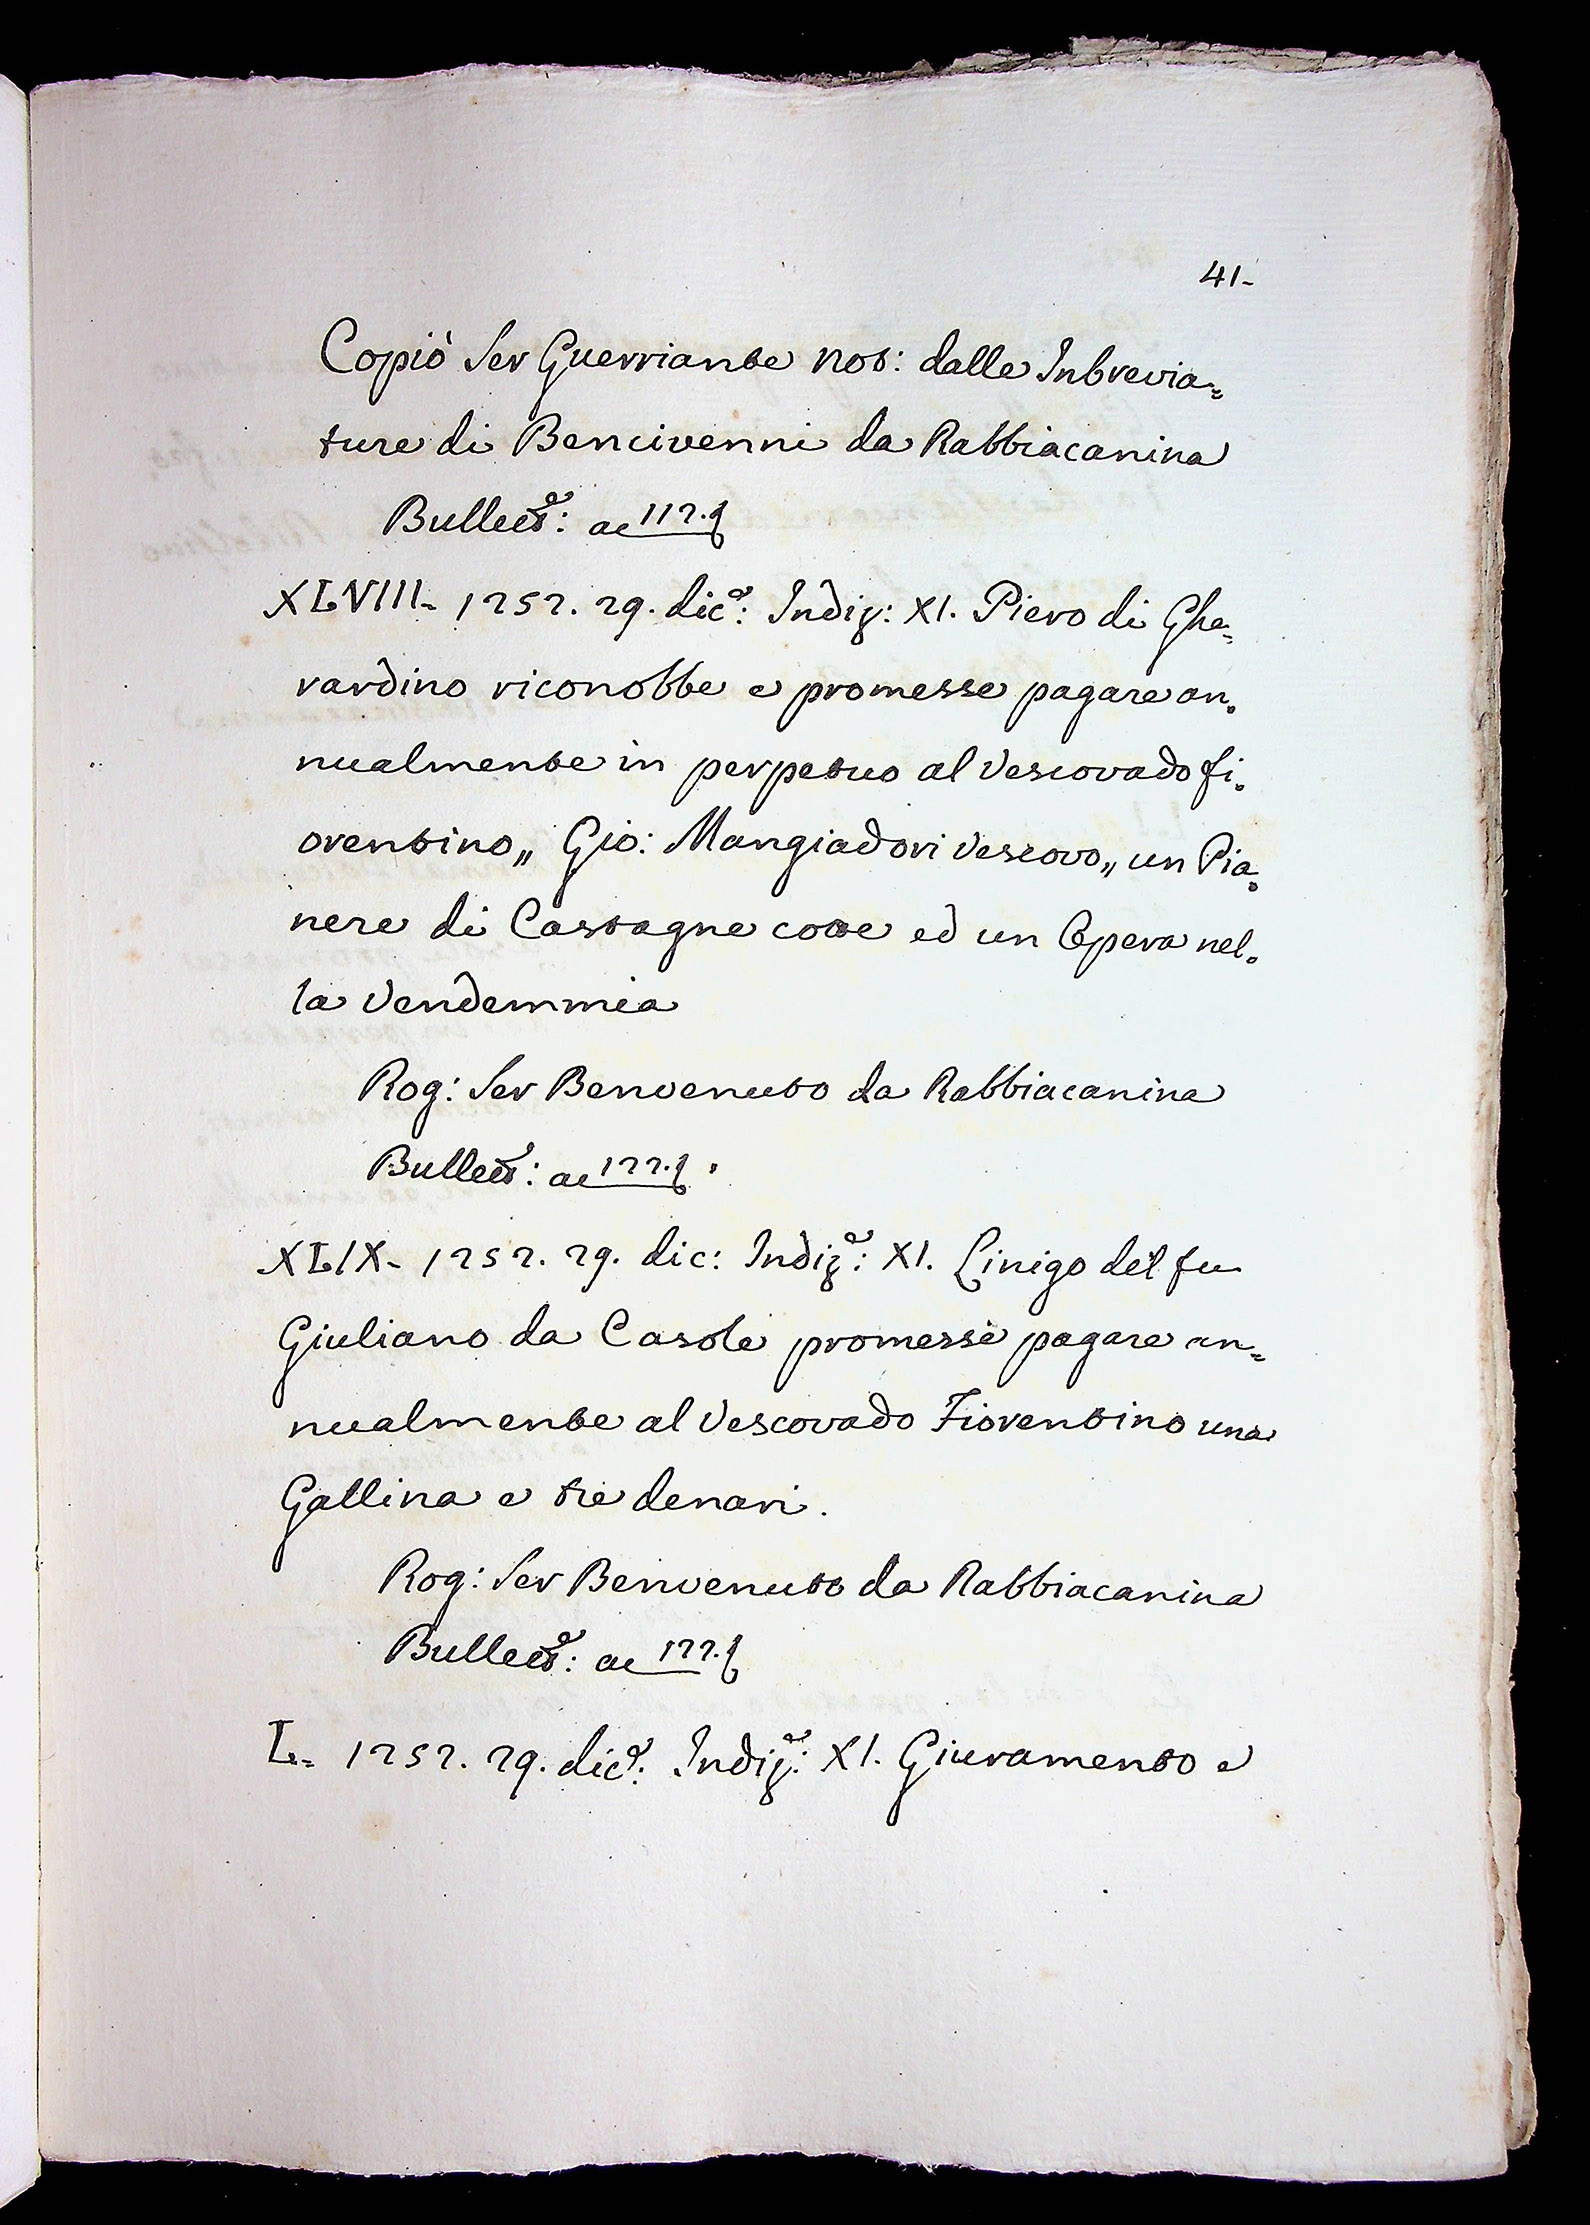 41-
Copiò Ser Guerriante not: dalle Inbrevia=
ture di Bencivenni da Rabbiacanina
Bullett.e: ac 112.
XLVIII- 1252. 29. dic.e: Indiz: XI. Piero di Ghe=
rardino riconobbe e promesse pagare an=
nualmente in perpetuo al Vescovado fi=
orentino,, Gio: Mangiadori Vescovo,, un Pia=
nere di Castagne cotte ed un Opera nel=
la Vendemmia
Rog: Ser Benvenuto da Rabbiacanina
Bullett: ac 122.
XLIX- 1252. 29. dic: Indiz.e: XI. Linigo del fu
Giuliano da Casole promesse pagare an=
nualmente al Vescovado Fiorentino una
Gallina e tre denari.
Rog: Ser Benvenuto da Rabbiacanina
Bullett.e: ac 122.
L= 1252. 29. dic.e: Indiz.e: XI. Giuramento e